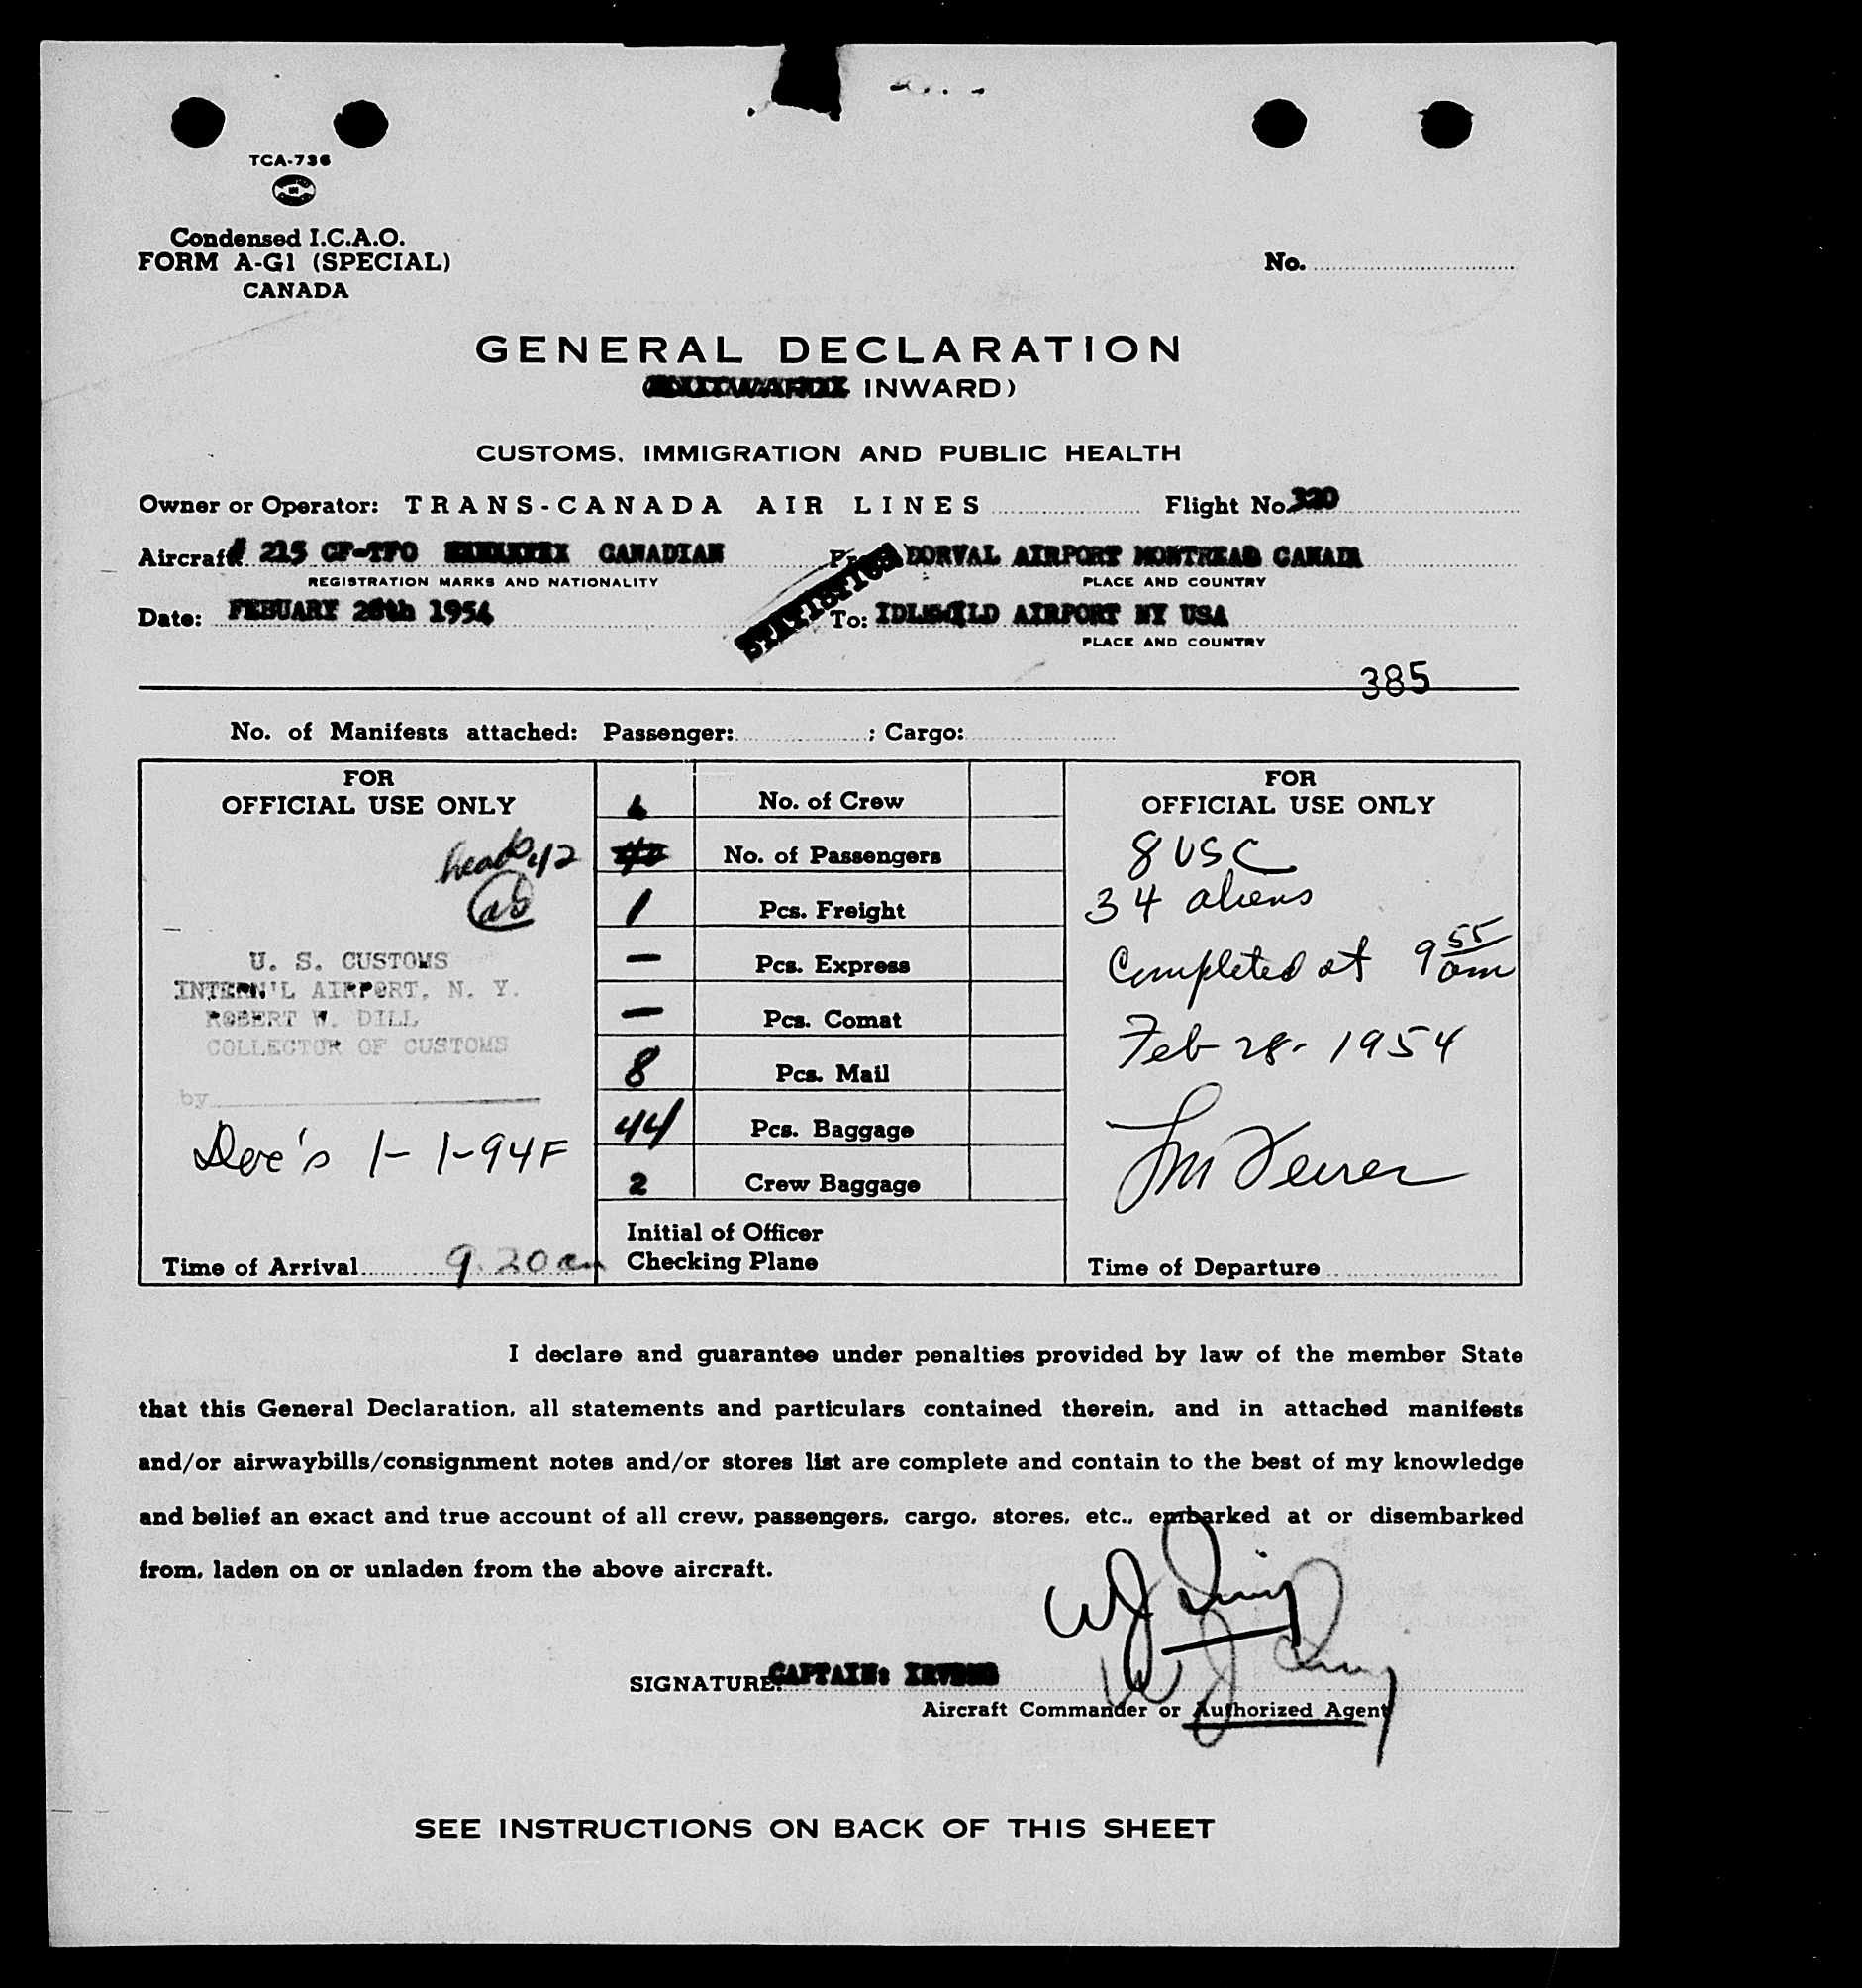 TCA-736
Condensed I.C.A.O.
FORM A-G1 (SPECIAL)
CANADA
No.
GENERAL DECLARATION
INWARD)
CUSTOMS, IMMIGRATION AND PUBLIC HEALTH
Owner or Operator: TRANS-CANADA AIR LINES Flight No. 320
Aircraft # 215 CF-TFO CANADIAN DORVAL AIRPORT MONTREAL CANADA
REGISTRATION MARKS AND NATIONALITY PLACE AND COUNTRY
STATISTICS
Date: FEBUARY 28th 1954 To: IDLEWILD AIRPORT NY USA
PLACE AND COUNTRY
385
No. of Manifests attached: Passenger: ; Cargo:
FOR
OFFICIAL USE ONLY
heads 42
U. S. CUSTOMS
INTERN'L AIRPORT, N. Y.
ROBERT W. DILL
COLLECTOR OF CUSTOMS
by
1- 1-94F
Time of Arrival 9.20 am
No. of Crew
No. of Passengers
1 Pcs. Freight
— Pcs. Express
— Pcs. Comat
8 Pcs. Mail
44 Pcs. Baggage
2 Crew Baggage
Initial of Officer
Checking Plane
FOR
OFFICIAL USE ONLY
8 USC
34 aliens
Completed at 9 55 am
Feb 28 - 1954
Time of Departure
I declare and guarantee under penalties provided by law of the member State
that this General Declaration, all statements and particulars contained therein, and in attached manifests
and/or airwaybills/consignment notes and/or stores list are complete and contain to the best of my knowledge
and belief an exact and true account of all crew, passengers, cargo, stores, etc., embarked at or disembarked
from, laden on or unladen from the above aircraft.
SIGNATURE: CAPTAIN:
Aircraft Commander or Authorized Agent
SEE INSTRUCTIONS ON BACK OF THIS SHEET